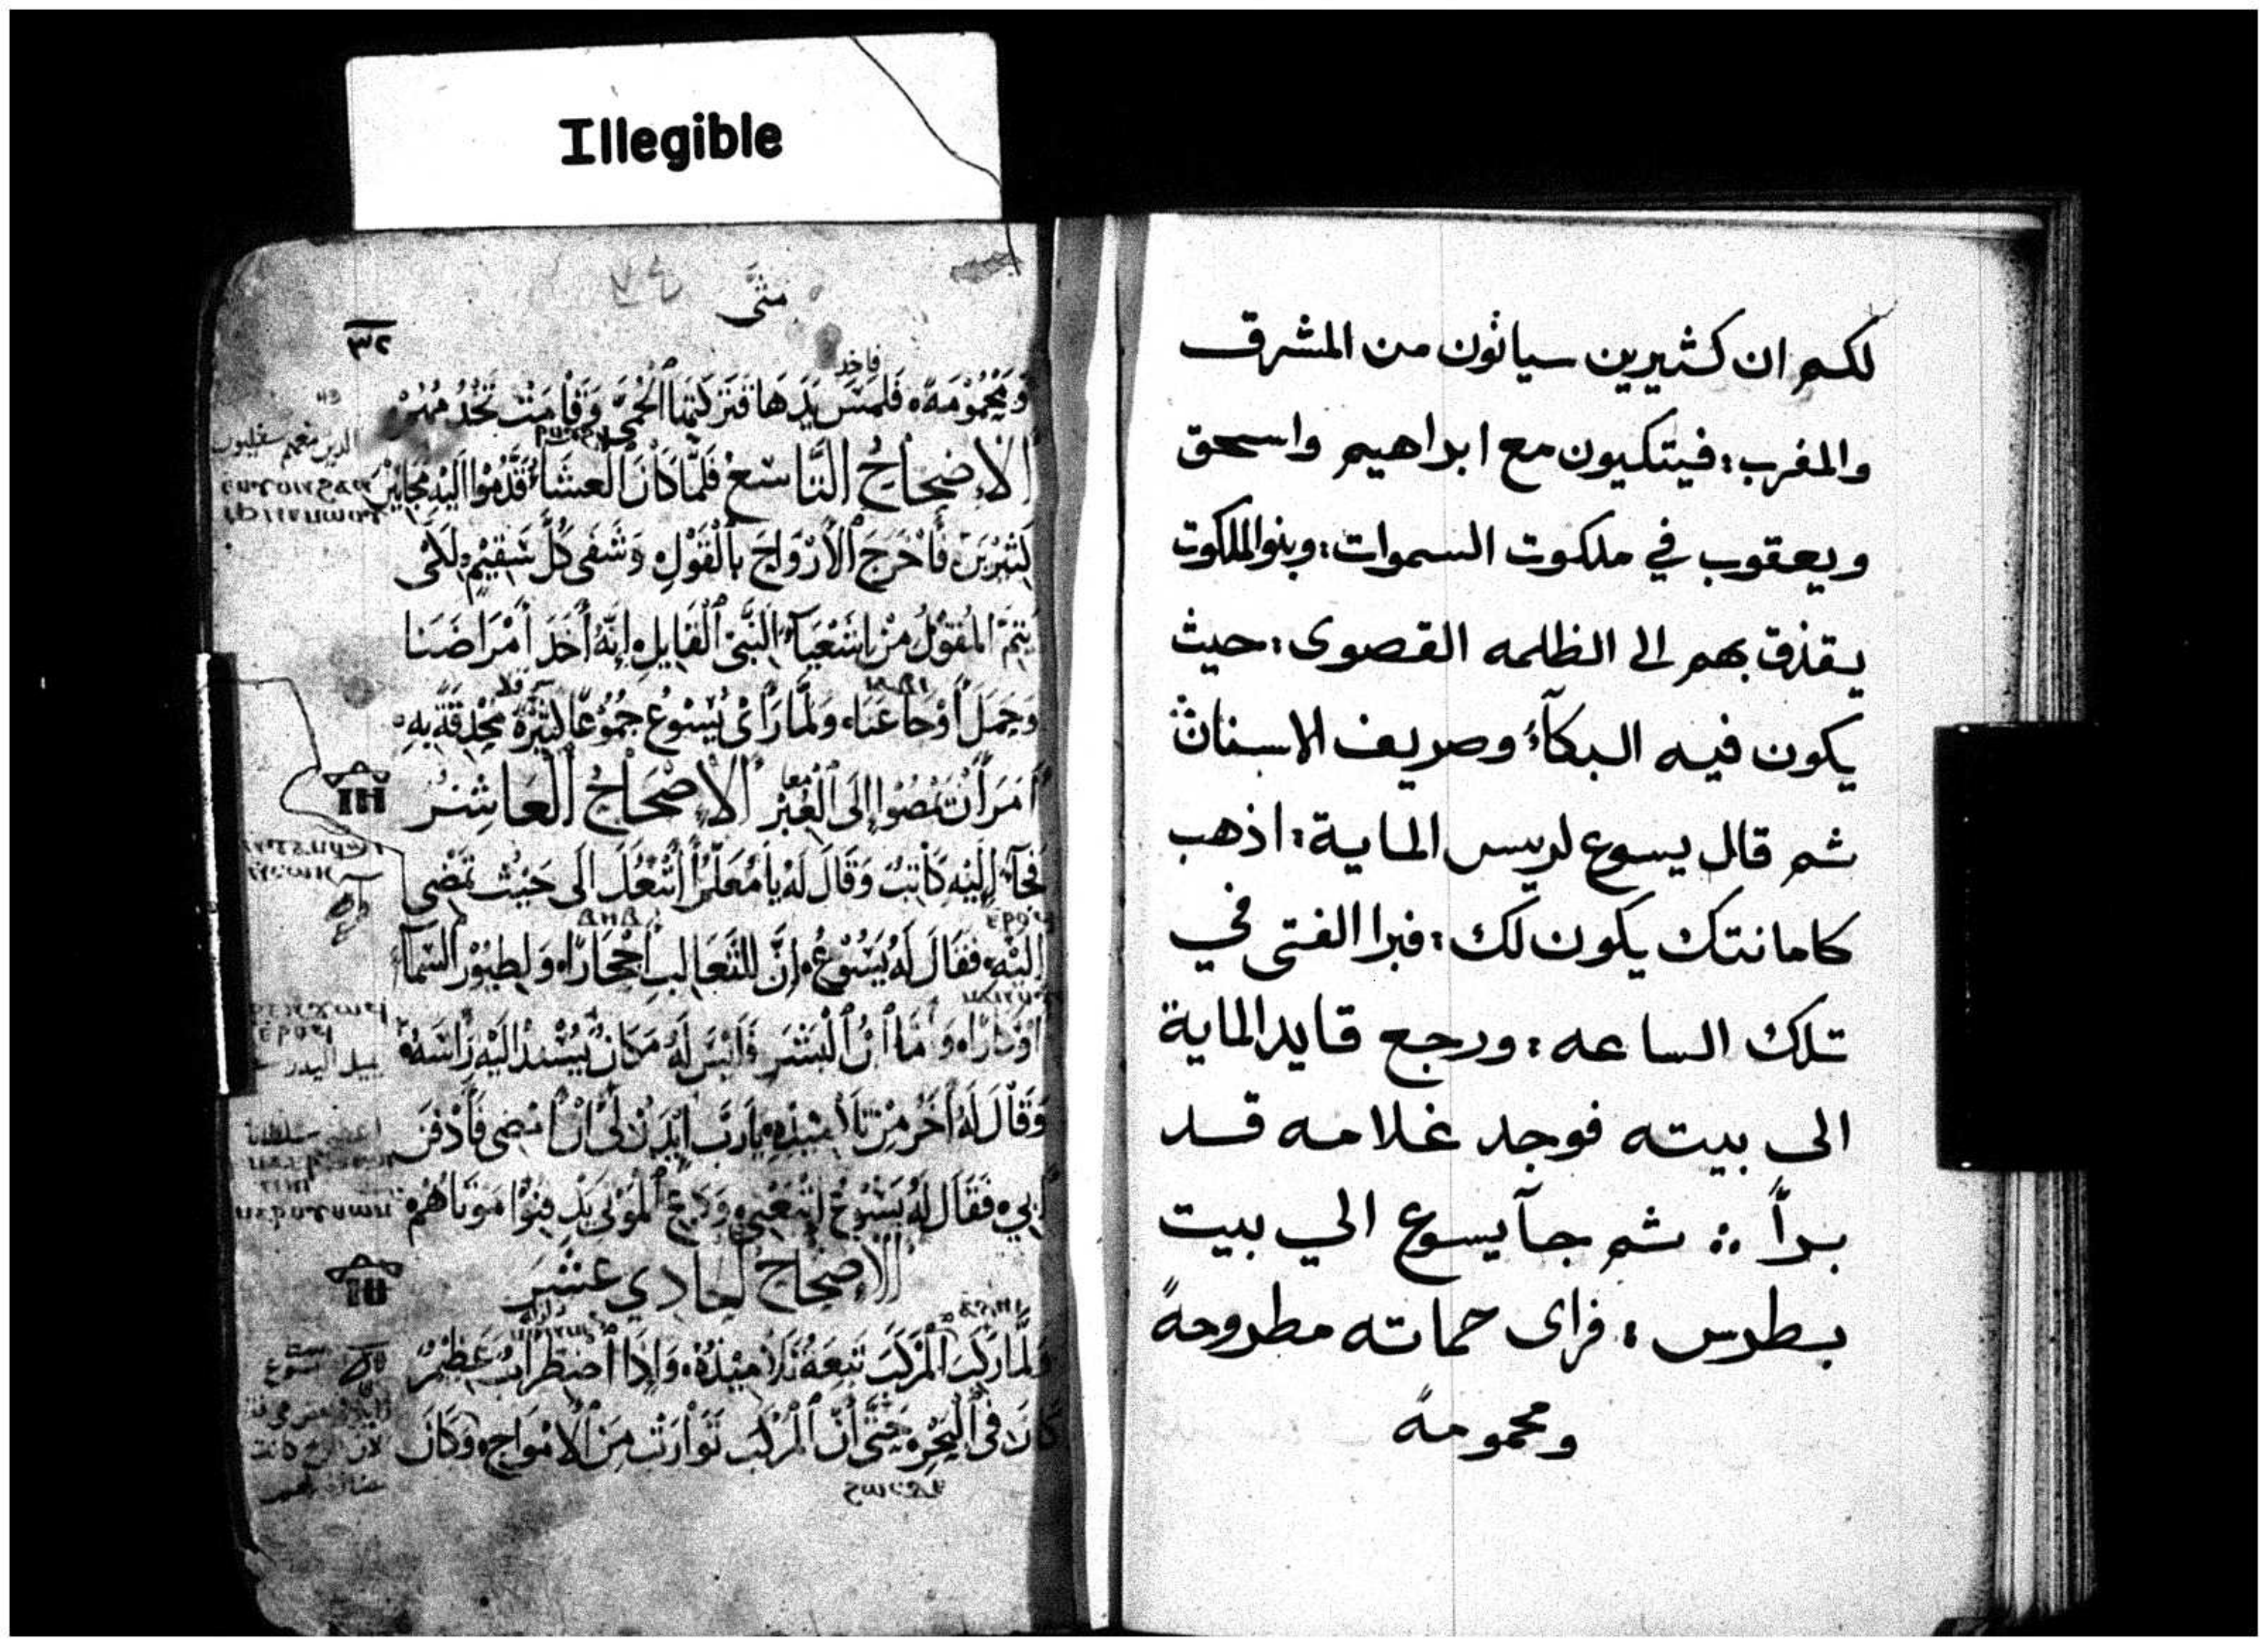 Illegible
لكم ان كثيرين سياتون من المشرق
والمغرب: فيتكيون مع ابراهيم واسحق
ويعقوب في ملكوت السموات: وبنو الملكوت
يقذق بهم الى الظلمه القصوى: حيث
يكون فيه البكآء وصريف الاسنان
ثم قال يسوع لريس الماية: اذهب
كامانتك يكون لك: فبرا الفتى في
تلك الساعه: ورجع قايد الماية
الى بيته فوجد غلامه قد
برأ :: ثم جآ يسوع الي بيت
بطرس: فراى حماته مطروحةً
ومحمومةً
مَتَّى
٣٢
فاخد
وَمَحْمُوْمَةً، فَلَمَسَ يَدَهَا فَتَرَكَتْهَا الْحُمَّى وَقَامَتْ تَخْدُمُهُمْ
الْإِصْحَاحُ التَّاسِعُ فَلَمَّا كَانَ الْعِشَاءُ قَدَّمُوْا الَيْهِ مَجَانِيْنَ
كَثِيْرِيْنَ فَأَخْرَجَ الْأَرْوَاحَ بِالْقَوْلِ وَشَفَى كُلَّ سَقِيْمٍ، لِكَىْ
يَتِمَّ الْمَقُوْلُ مِنْ اشَعْيَآءَ النَّبِىِّ الْقَايِلِ، إِنَّهُ أَخَدَ أَمْرَاضَنَا
وَحَمَلَ أَوْجَاعَنَا، وَلَمَّا رَأَىْ يَسُوْعُ جُمُوْعًا كَثِيْرَةً مُحْدِقَةً بِهِ،
أَمَرَ أَنْ يَمْضُوْا إِلَى الْعَبْرِ الْإِصْحَاحُ الْعَاشِرُ
فَجَآءَ إِلَيْهِ كَاتِبٌ وَقَالَ لَهُ يَا مُعَلِّمُ أَتْبَعُكَ الَى حَيْثُ تَمْضِى
الَيْهِ، فَقَالَ لَهُ يَسُوْعُ، إِنَّ لِلثَّعَالِبِ اجْحَارًا، وَلِطُيُوْرِ السَّمَآءِ
أَوْكَارًا، وَأَمَّا ابْنُ الْبَشَرِ فَلَيْسَ لَهُ مَكَانٌ يُسْنِدُ الَيْهِ رَأْسَهُ،
وَقَالَ لَهُ أَخَرُ مِنْ تَلَامِيْذِهِ، يَارَبُّ ايْدَنْ لِىْ أَنْ أَمْضِى فَأَدْفِنَ
أَبِي، فَقَالَ لَهُ يَسُوْعُ اتْبَعْنِي، وَدَعِ الْمَوْتَى يَدْفِنُوْا مَوْتَاهُمْ،
الْإِصْحَاحُ الحَادِي عَشَرَ
وَلَمَّا رَكِبَ الْمَرْكَبَ تَبِعَهُ تَلَامِيْذُهُ، وَإِذَا اضْطِرَابٌ عَظِيْمٌ
كَانَ فِى الْبَحْرِ، حَتَّى أَنَّ الْمَرْكَبَ تَوَارَتْ مِنَ الْأَمْوَاجِ، وَكَانَ